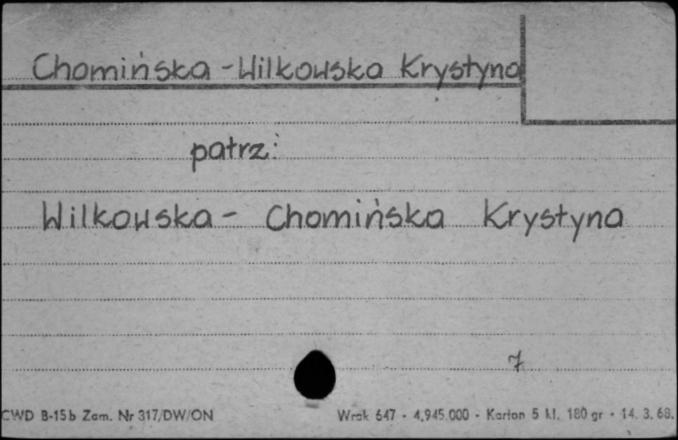 Chomińska-Wilkowska Krystyna
patrz:
Wilkowska- Chomińska Krystyna
7
CWD B-15b Zam. Nr 317/DW/ON Wrak 647 - 4,945.000 - Karton 5 kl. 180 gr - 14. 3. 68.